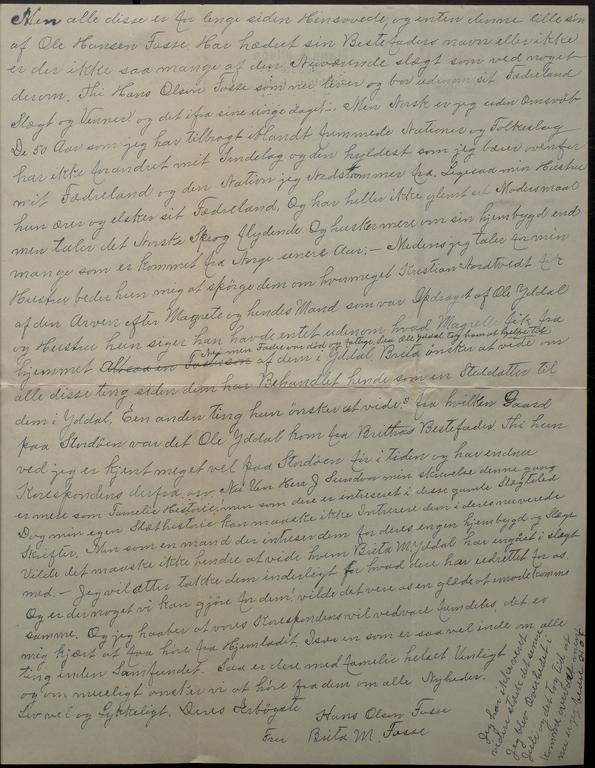 Men alle disse er for lenge siden Hensovede, og enten denne lille søn
af Ole Hansen Fosse Har hædret sin Bestefaders navn eller ikke
er der ikke saa mange af den Nuværende slægt som ved noget
derom. Thi Hans Olsen Fosse som nu lever og bor udenom sit Fædreland
Slægt og Venner og det ifra sine unge dage. Men Norsk er jeg uden Omsvøb
De 50 Aar som jeg har tilbragt iblandt fremmede Nationer og Folkeslag
har ikke forandret mit Sindelag og den hyldest som jeg bærer overfor
mit Fædreland og den Nation jeg Nedstammer fra. Ligesaa min Hustru
hun ærer og elsker sit Fædreland, Og har heller ikke glemt sit Modersmaal
men taler det Norske Sprog flydende Og husker mere om sin hjembygd end
mange som er kommet fra Norge senere Aar; — Medens jeg taler for min
Hustru beder hun mig at spørge dem om hvormeget Kristian Nordtvedt fik
af den Arven efter Magrete og hendes Mand som var Opdraget af Ole Yddal
og Hustru hun siger han havde entet udenom hvad Magrete fik fra
Nei men Fader var død og fattige, saa Ole Yddal tog ham at hjelpe til
hjemmet af dem i Yddal, Brita ønsker at vide om
alle disse ting siden dem har Behandlet hende som en Steddatter til
dem i Yddal. Een anden ting hun ønsker at vide, fra hvilken Gaard
paa Stordøen var det Ole Yddal kom fra Brittas Bestefader. Thi hun
ved jeg er kjent meget vel paa Stordøen før i tiden og har endnu
Korespondens derfra, osv. Nu Ven Herr J Sundvor min skrivelse denne gang
er mere som Familie Historie, men som dere er intreseret i disse gamle Slægtsled
Dog min egen Slæthistorie kan maaske ikke Intresere dem i deres nuværende
Skrifter. Men som en mand der intreser dem for deres engen hjembygd og Slægt
Vilde det maaske ikke hendre at vide hvem Brita M. Yddal har indgaaet i slægt
med. — Jeg vil atter takke dem inderligt for hvad dere har udrettet for os.
Og er der noget vi kan gjøre for dem, vilde det være os en glæde at imødekomme
samme. Og jeg haaber at vores Korespondens vil vedvare fremdeles, det er
mig kjært at faa høre fra Hjemladet Især en som er saa vel inde om alle
ting inden Samfundet. Saa er dere med familie helset Venligt
og om mueligt ønsker vi at høre fra dem om alle Nyheder.
Lev vel og Lykkeligt. Deres Ærbøgste
Hans Olsen Fosse
Fru Brita M. Fosse
Jeg har ikke været
videre stærk det sidste
Jeg blev Overhedet i
Juli og det tog tid at
komme over
men er jeg bedre